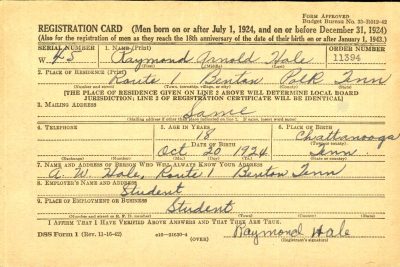 Form Approved
Budget Bureau No. 33-R012-42
REGISTRATION CARD (Men born on or after July 1, 1924, and on or before December 31, 1924)
(Also for the registration of men as they reach the 18th anniversary of the date of their birth on or after January 1, 1943.)
SERIAL NUMBER 1. NAME (Print) ORDER NUMBER
W 45 Raymond Arnold Hale 11394
(First) (Middle) (Last)
2. PLACE OF RESIDENCE (Print)
Route 1 Benton Polk Tenn
(Number and street) (Town, township, village, or city) (County) (State)
[THE PLACE OF RESIDENCE GIVEN ON LINE 2 ABOVE WILL DETERMINE LOCAL BOARD
JURISDICTION; LINE 2 OF REGISTRATION CERTIFICATE WILL BE IDENTICAL]
3. MAILING ADDRESS
Same
[Mailing address if other than place indicated on line 2. If same, insert word same]
4. TELEPHONE 5. AGE IN YEARS 6. PLACE OF BIRTH
18 Chattanooga
DATE OF BIRTH (Town or county)
Oct 20 1924 Tenn.
(Exchange) (Number) (Mo.) (Day) (Yr.) (State or country)
7. NAME AND ADDRESS OF PERSON WHO WILL ALWAYS KNOW YOUR ADDRESS
A. W. Hale, Route 1 Benton Tenn
8. EMPLOYER'S NAME AND ADDRESS
Student
9. PLACE OF EMPLOYMENT OR BUSINESS
Student
(Number and street or R. F. D. number) (Town) (County) (State)
I AFFIRM THAT I HAVE VERIFIED ABOVE ANSWERS AND THAT THEY ARE TRUE.
DSS Form 1 (Rev. 11-16-42) (OVER) Raymond Hale
(Registrant's signature)